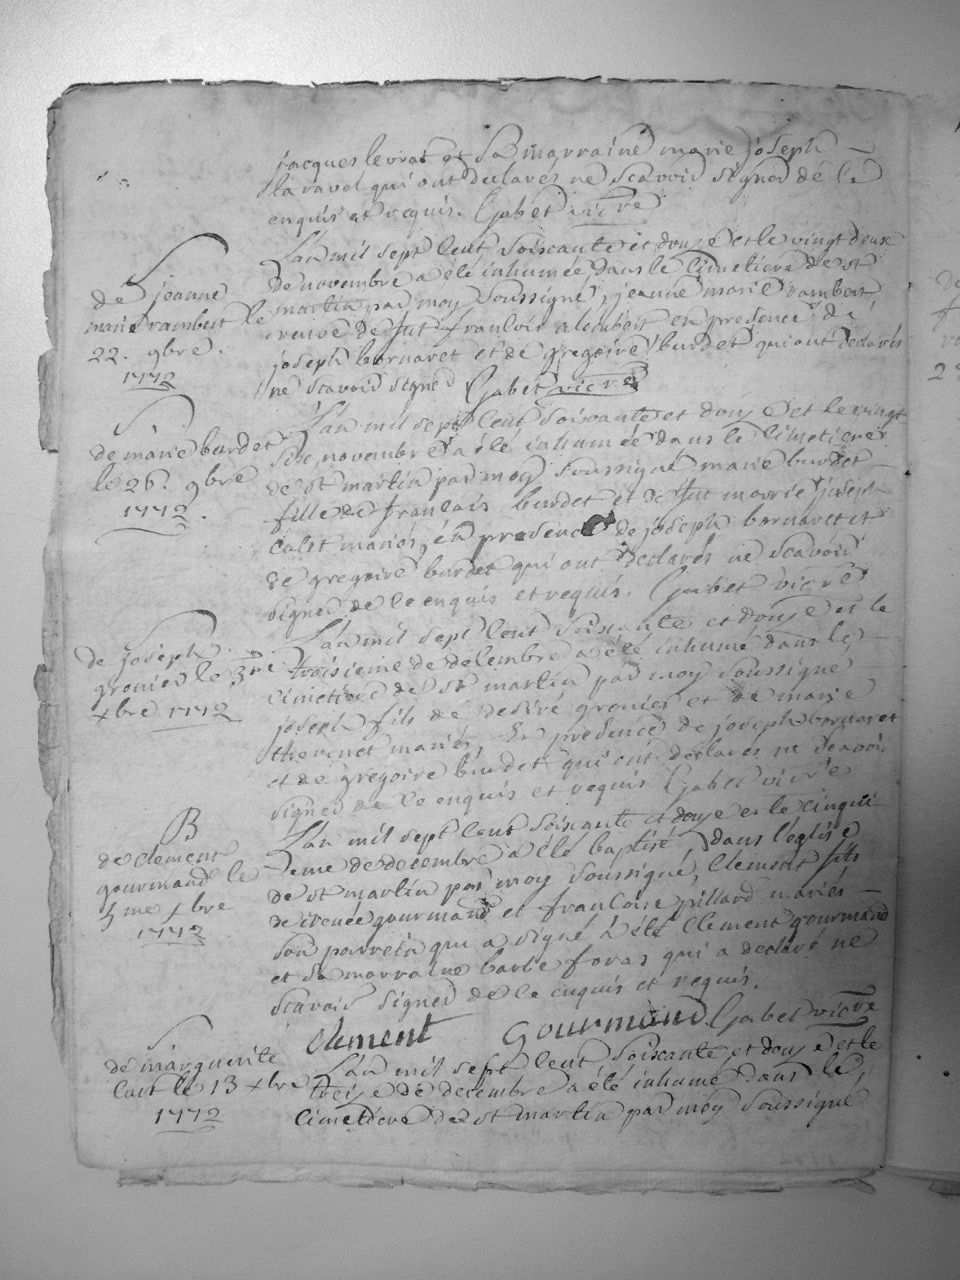 jacques levrat et Sa marraine marie joseph
laravet qui ont declarés ne Scavoir Signer dé le
enquis et requis. Gabet vicre
S
de jeanne
marie rambert le
22. 9bre.
1772
L'an mil sept Cent Soiscante et douze et le vingt deux
de novembre a été inhumée dans le Cimetiere de st
martin par moy Soussigné, jeanne marie rambert
veuve de fut francois alembert en presence de
joseph bernaret et de gregoire burdet qui ont declarés
ne Scavoir Signer Gabet vicre
S
de marie burdet
le 26. 9bre
1772.
L'an mil sept Cent Soixante et douze et le vingt
Six novembre a été inhumée dans le Cimetiere
de st martin par moy Soussigné marie burdet
fille de francais burdet et de fut marie joseph
mariés, en presence de joseph bernaret et
de gregoire burdet qui ont declarés ne Scavoir
signer de le enquis et requis. Gabet vicre
S
de joseph
grenier le 3me
xbre 1772
L'an mil sept Cent Soixante et douze et le
troisieme de decembre a été inhumé dans le
Cimetiere de st martin par moy Soussigné
joseph fils dé desiré grenier et de marie
thevenet mariés, En presence de joseph bernaret
et de gregoire burdet qui ont declarés ne Scavoir
signer de le enquis et requis Gabet vicre
B
de clement
gourmand le
5me xbre
1772
L'an mil sept Cent Soixante et douze et le cinqui
-eme de decembre a été baptisé, dans l'église
de st martin par moy Soussigné, Clement fils
de gourmand et francoise pillard mariés
Son parrein qui a signé a été Clement gourmand
et sa marraine barbe foras qui a declaré ne
Scavoir Signer de le enquis et requis.
Clement Gourmand Gabet vicre
S
de marguerite
le 13 xbre
1772
L'an mil sept Cent Soiscante et douze et le
treize de decembre a été inhumé dans le
Cimetiere de st martin par moy Soussigné